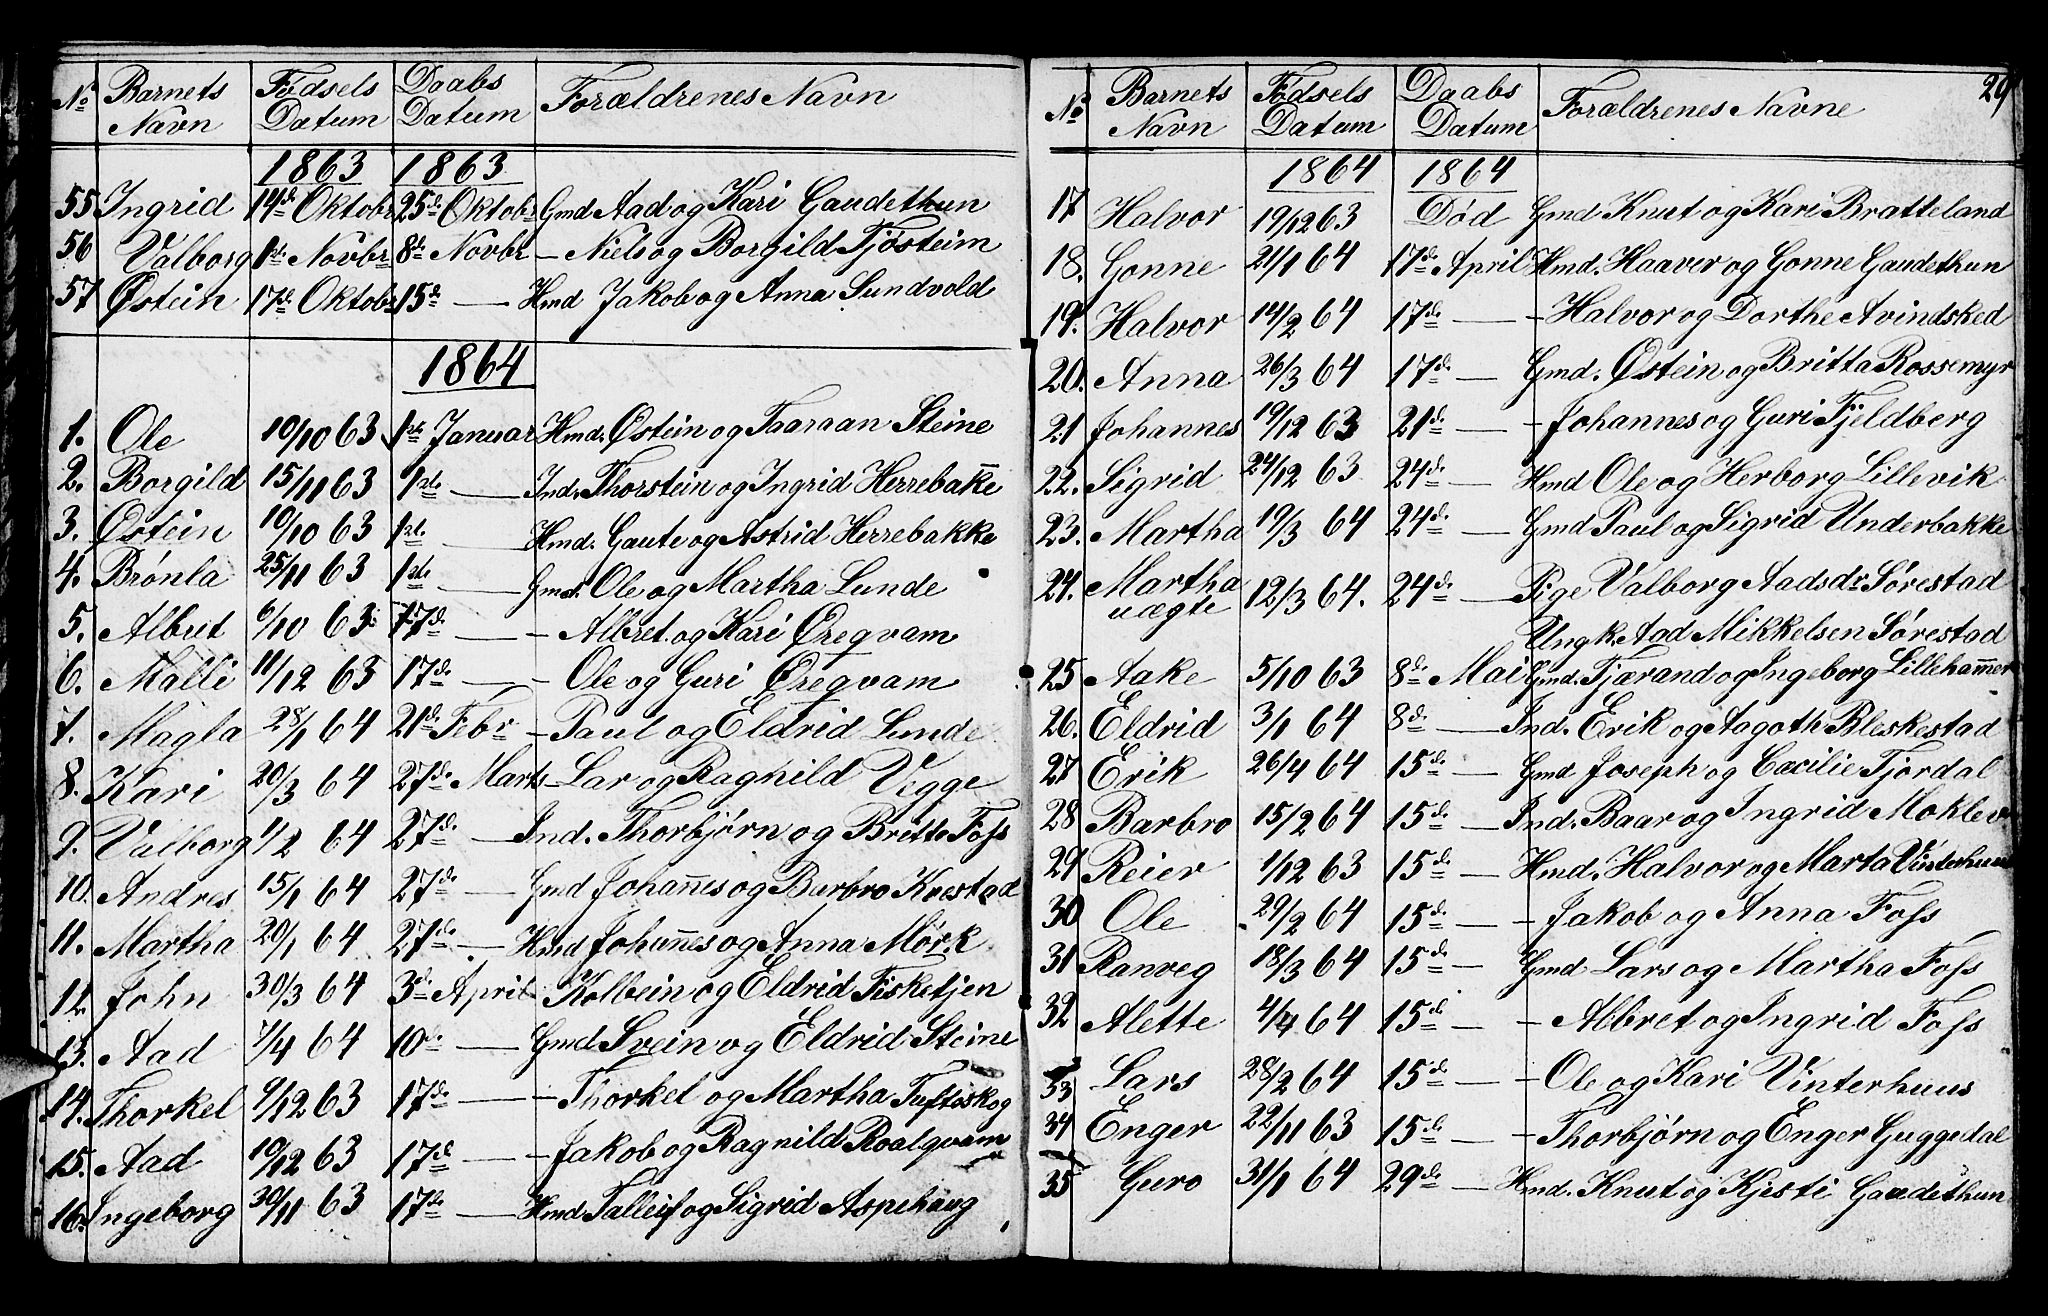 No Barnets Navn Fødsels Datum Daabs Datum Forældrenes Navn
1863 1863
55 Ingrid 14de Oktobr 25de Oktobr Gmd Aad og Kari Gaudethun
56 Valborg 1ste Novbr 8de Novbr — Niels og Borgild Tjösteim
57 Østein 17de Oktobr 15de — Hmd Jakob og Anna Sundvold
1864
1. Ole 10/10 63 1ste Januar Hmd. Østein og Taaraan Steine
2. Borgild 15/11 63 1ste — Ind. Thorstein og Ingrid Herrebak̄e
3. Østein 10/10 63 1ste — Hmd. Gaute og Astrid Herrebakke
4. Brønla 25/11 63 1ste — Gmd. Ole og Martha Lunde
5. Albret 6/10 63 17de — - Albret og Kari Øreqvam
6. Malli 11/12 63 17de — - Ole og Guri Øreqvam
7. Magla 28/1 64 21de Febr - Paul og Eldrid Lunde
8. Kari 20/3 64 27de Marts - Lar og Ragnild Vegge
9. Valborg 1/2 64 27de — Ind. Thorbjørn og Britte Foss
10. Andres 15/1 64 27de — Gmd Johan̄es og Burbro Knestad
11. Martha 20/1 64 27de — Hmd Johan̄es og Anna Mørk
12. John 30/3 64 3de April Kolbein og Eldrid Fisketjen
13. Aad 7/4 64 10de — Gmd Svein og Eldrid Steine
14. Thorkel 9/12 63 17de — - Thorkel og Martha Tuftiskog
15. Aad 10/12 63 17de — - Jakob og Ragnild Roalqvam
16. Ingeborg 30/11 63 17de — Hmd Talleif og Sigrid Aspehaug
29
No Barnets Navn Fødsels Datum Daabs Datum Forældrenes Navne
1864 1864
17 Halvor 19/12 63 Död Gmd. Knut og Kari Bratteland
18. Gonne 21/1 64 17de April Hmd. Haaver og Gonne Gaudethun
19. Halvor 14/2 64 17de — - Halvor og Dorthe Avindsked
20. Anna 26/3 64 17de — Gmd. Østein og Britta Rossemyr
21 Johannes 19/12 63 21de — - Johannes og Guri Fjeldberg
22. Sigrid 24/12 63 24de — Hmd Ole og Herborg Lillevik
23. Martha 19/3 64 24de — Gmd Paul og Sigrid Underbakke
24. Martha uægte 12/3 64. 24de — Pige Valborg Aadsdr Sørestad
Ungk. Aad Mikkelsen Sørestad
25 Aake 5/10 63 8de Mai Gmd. Tjærand og Ingeborg Lilleham̄er
26. Eldrid 3/1 64 8de — Ind. Erik og Aagoth Bleskestad
27 Erik 26/4 64 15de — Gmd Joseph og Cæcilie Fjordal
28 Barbro 15/2 64 15de — Ind. Baar og Ingrid Moklev
29 Reier 1/12 63 15de — Hmd. Halvor og Marta Vinterhuus
30 Ole 29/2 64 15de — - Jakob og Anna Foss
31 Ranveg 18/3 64 15de — Gmd Lars og Martha Foss
32 Alette 4/4 64 15de — - Albret og Ingrid Foss
33 Lars 28/2 64 15de — - Ole og Kari Vinterhuus
34 Enger 22/11 63 15de — - Thorbjørn og Enger Guggedal
35 Guro 31/1 64 29de — Hmd. Knut og Kjisti Gaudethun